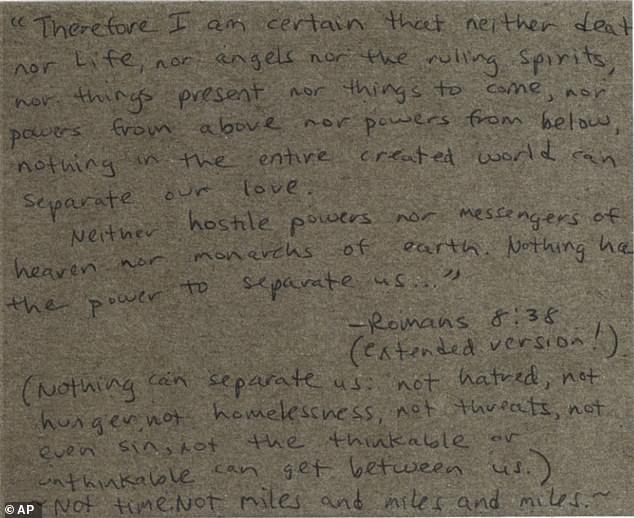 “Therefore I am certain that neither deat
nor Life, nor angels nor the ruling spirits,
nor things present nor things to come, nor
powers from above nor powers from below,
nothing in the entire created world can
separate our love.
Neither hostile powers nor messengers of
heaven nor monarchs of earth. Nothing ha
the power to separate us...”
-Romans 8:38
(extended version!)
(Nothing can separate us: not hatred, not
hunger, not homelessness, not threats, not
even sin, not the thinkable or
unthinkable can get between us.)
~Not time. Not miles and miles and miles.~
© AP